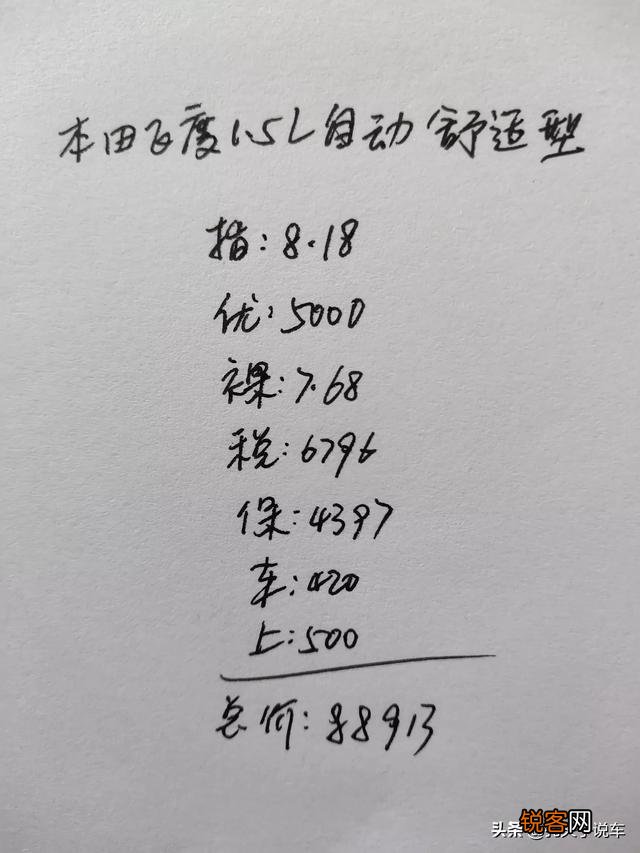 本田飞度1.5L自动舒适型
指:8.18
优:5000
裸:7.68
税:6796
保:4397
车:420
上:500
总价:88913
锐客网
头条 说车